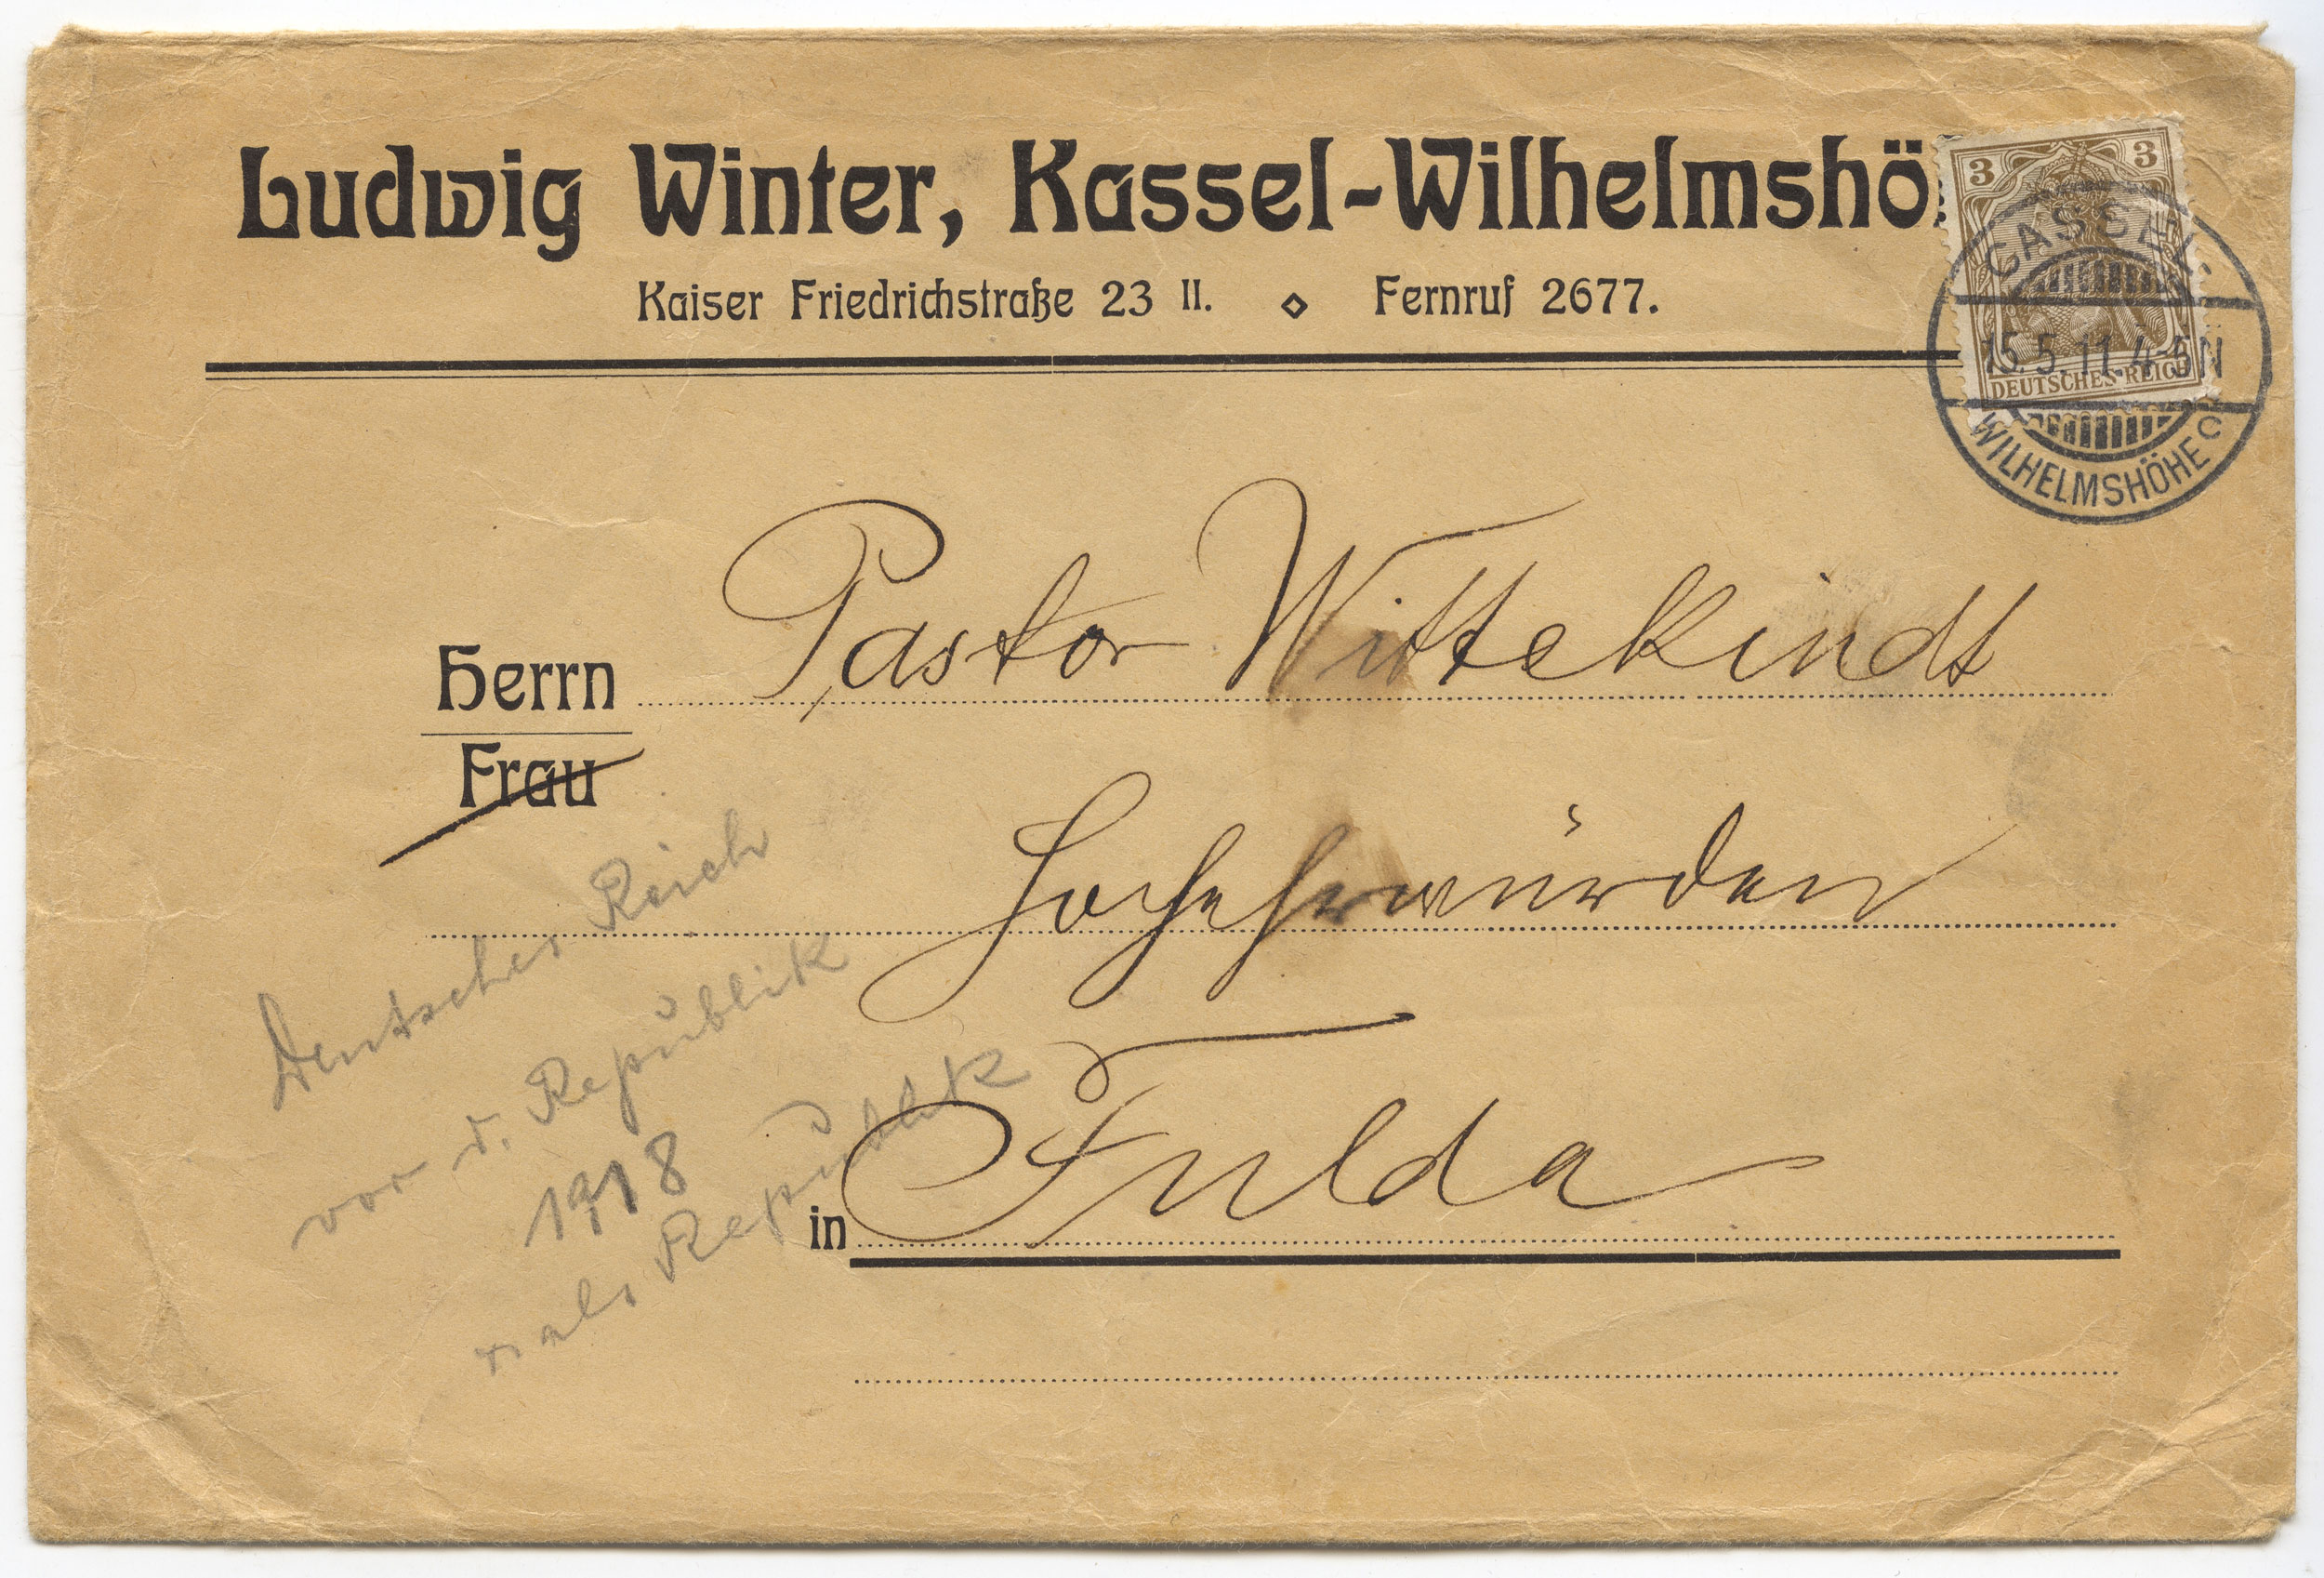 Ludwig Winter, Kassel-Wilhelmshö
Kaiser Friedrichstraße 23 II. ⋄ Fernruf 2677.
3 3
DEUTSCHES REICH
CASSEL.
15.5.11.4-5N
WILHELMSHÖHE C
Herrn Pastor Wittekindt
Frau
Hochehrwürden
in Fulda
Deutsches Reich
vor d. Republik
1918
als Republik